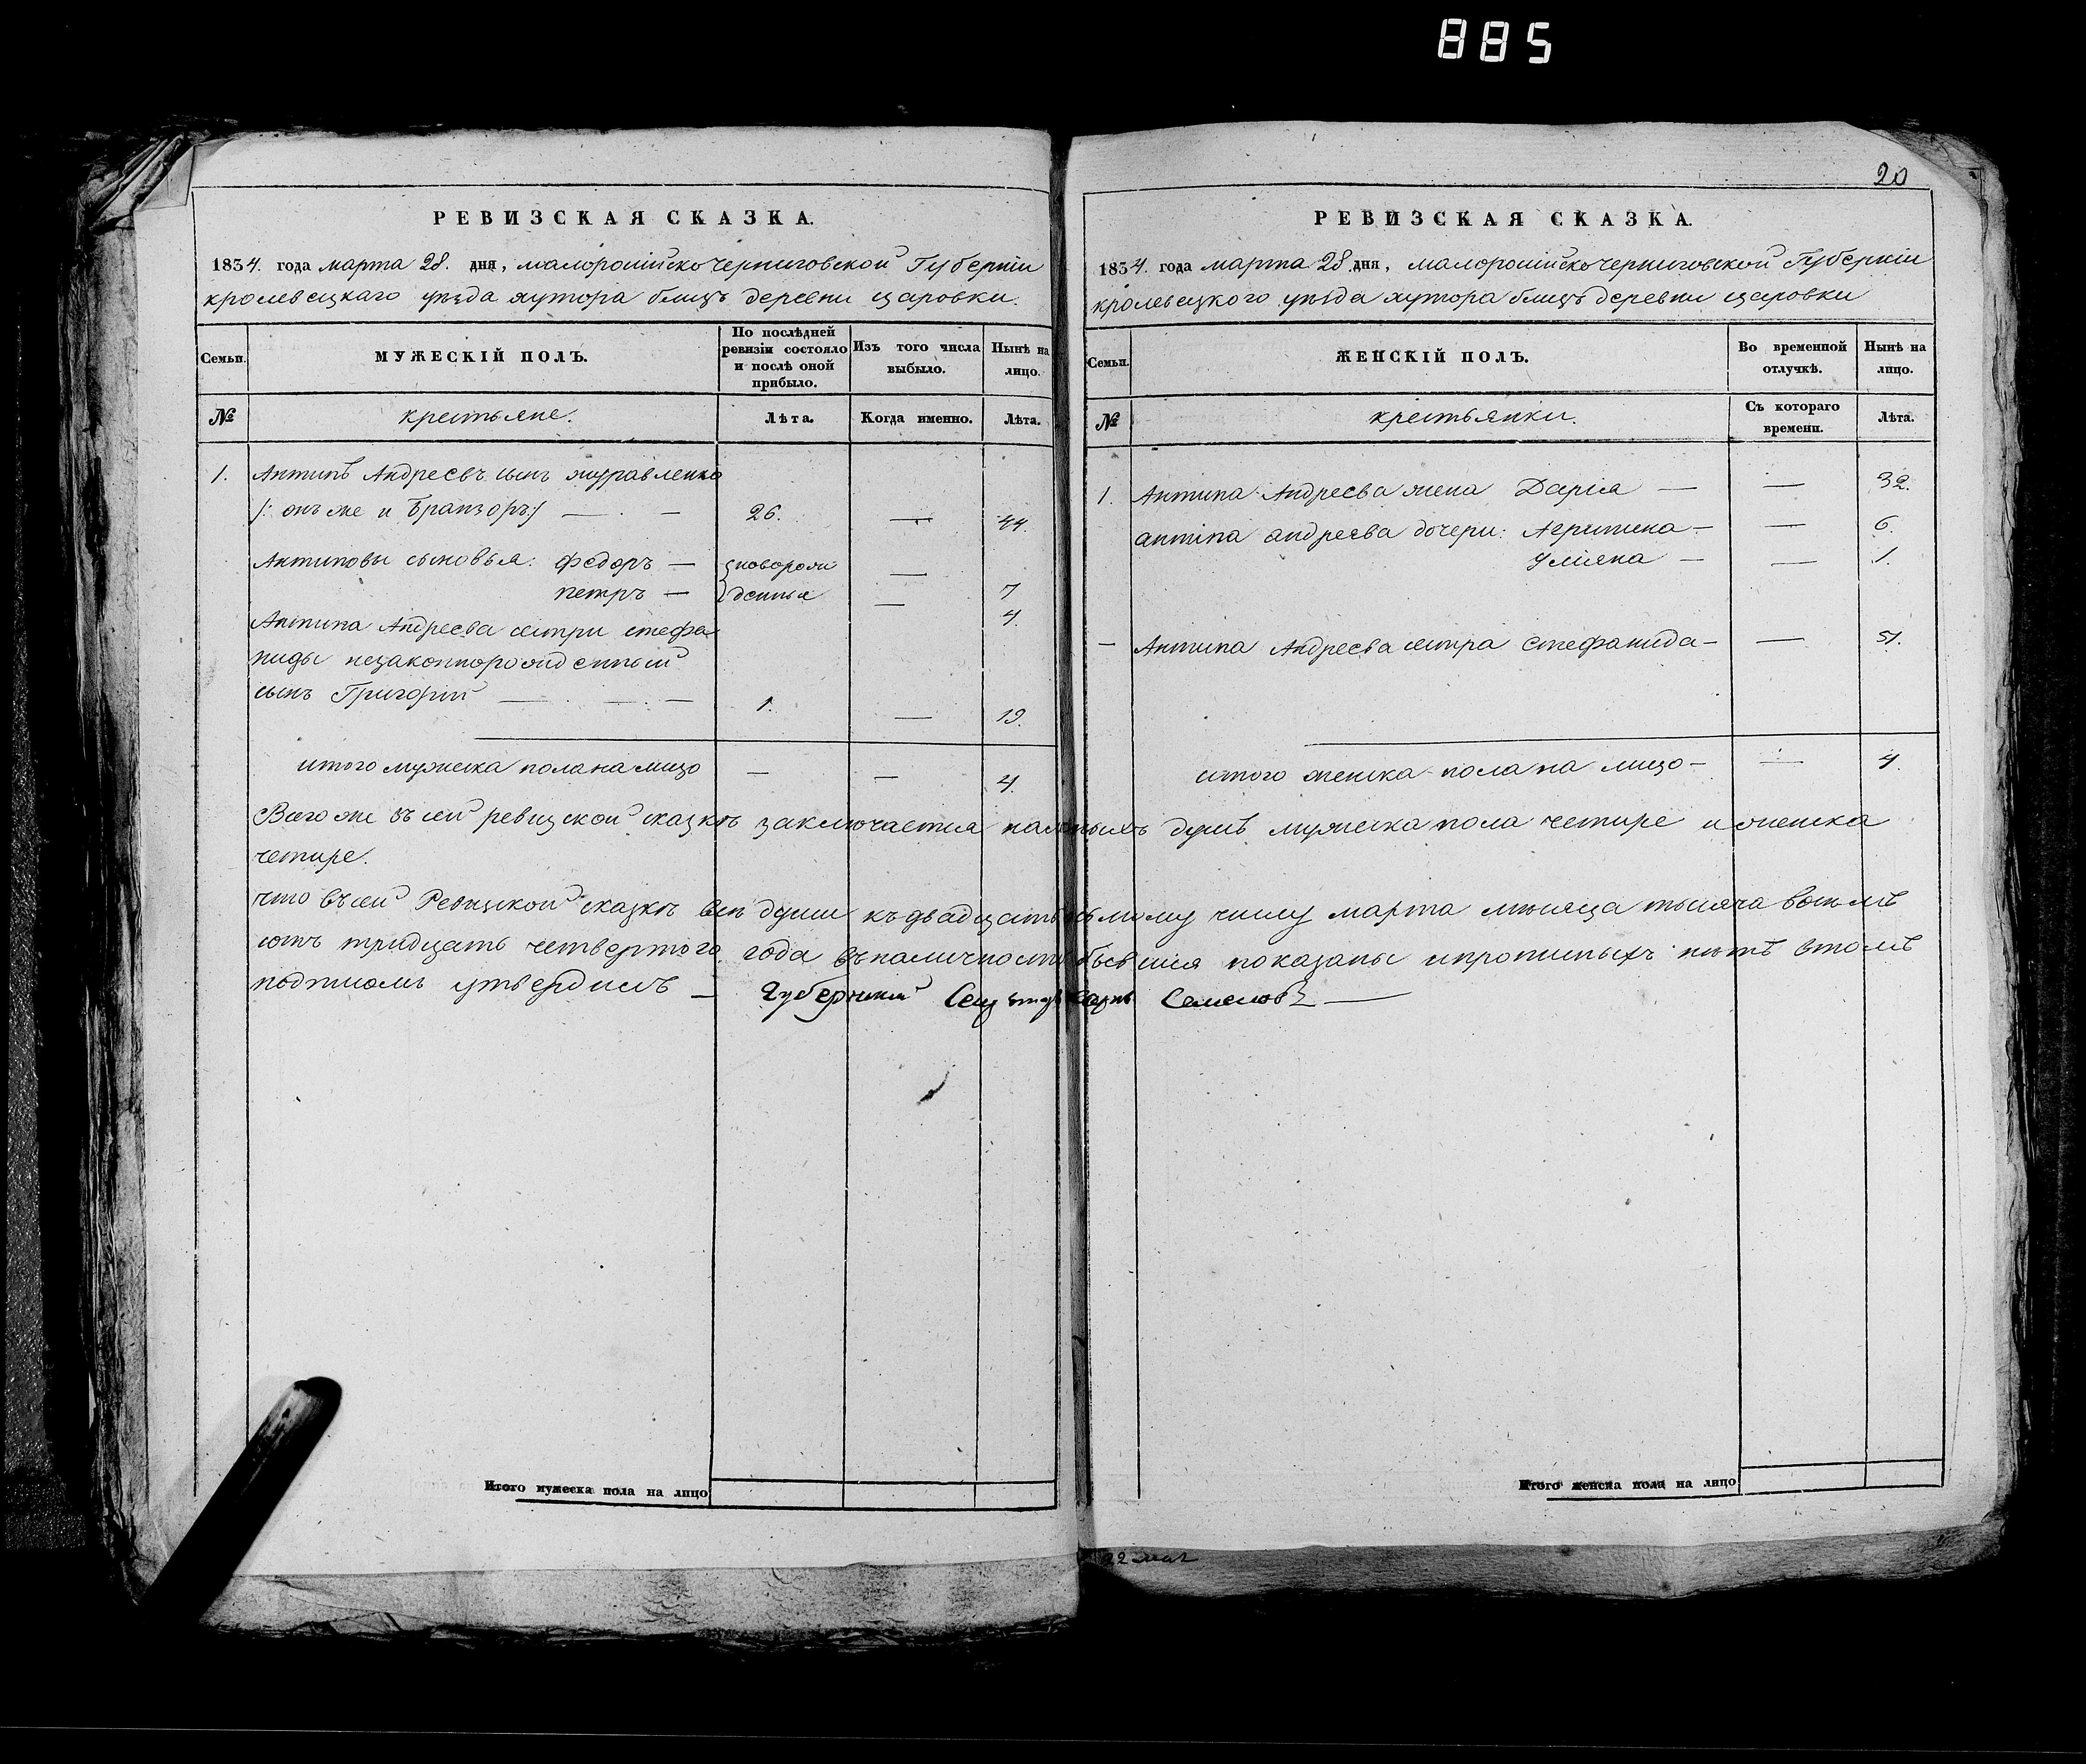 885
20
РЕВИЗСКАЯ СКАЗКА.
1834. года марта 28. дня, малороссійско черниговской Губерніи
кролевецкаго уѣзда хутора близъ деревни царовки.
Семьи.
МУЖЕСКІЙ ПОЛЪ.
По послѣдней ревизіи состояло и послѣ оной прибыло.
Изъ того числа выбыло.
Нынѣ на лицо.
№ крестьяне. Лѣта. Когда именно. Лѣта.
1. Антипъ Андреевъ сынъ журавленко
/: онъ же и Бранзоръ:/ — . — 26. — 44.
Антиповы сыновья: Федоръ — новорож — 7
петръ — денныя — 4.
Антипа Андреева сестри стефа
ниды незаконнорожденный
сынъ Григорій — . — . — 1. — 19.
итого мужеска пола на лицо — — 4.
РЕВИЗСКАЯ СКАЗКА.
1834. года марта 28 дня, малороссійско черниговской Губерніи
кролевецкого уѣзда хутора близъ деревни царовки
Семьи.
ЖЕНСКІЙ ПОЛЪ.
Во временной отлучкѣ.
Нынѣ на лицо.
№ крестьянки. Съ котораго времени. Лѣта.
1. Антипа Андреева жена Дарія — — 32.
антіпа андреева дочери: Агрипина — — 6.
Уліяна — — 1.
— Антипа Андреева сестра Стефанида — — 51.
итого женска пола на лицо — — 4.
Всего же въ сей ревизской сказкѣ заключается наличныхъ душъ мужеска пола четире и женска
четире.
что въ сей Ревизской сказкѣ всѣ души къ двадцать осьмому числу марта мѣсяца тысяча восемъ
сотъ тридцать четвертого года въ наличности бывшія показаны и прописныхъ нѣтъ втомъ
подписомъ утвердилъ — Губернский Секретарь Семеновъ —
Итого мужеска пола на лицо
Итого женска пола на лицо